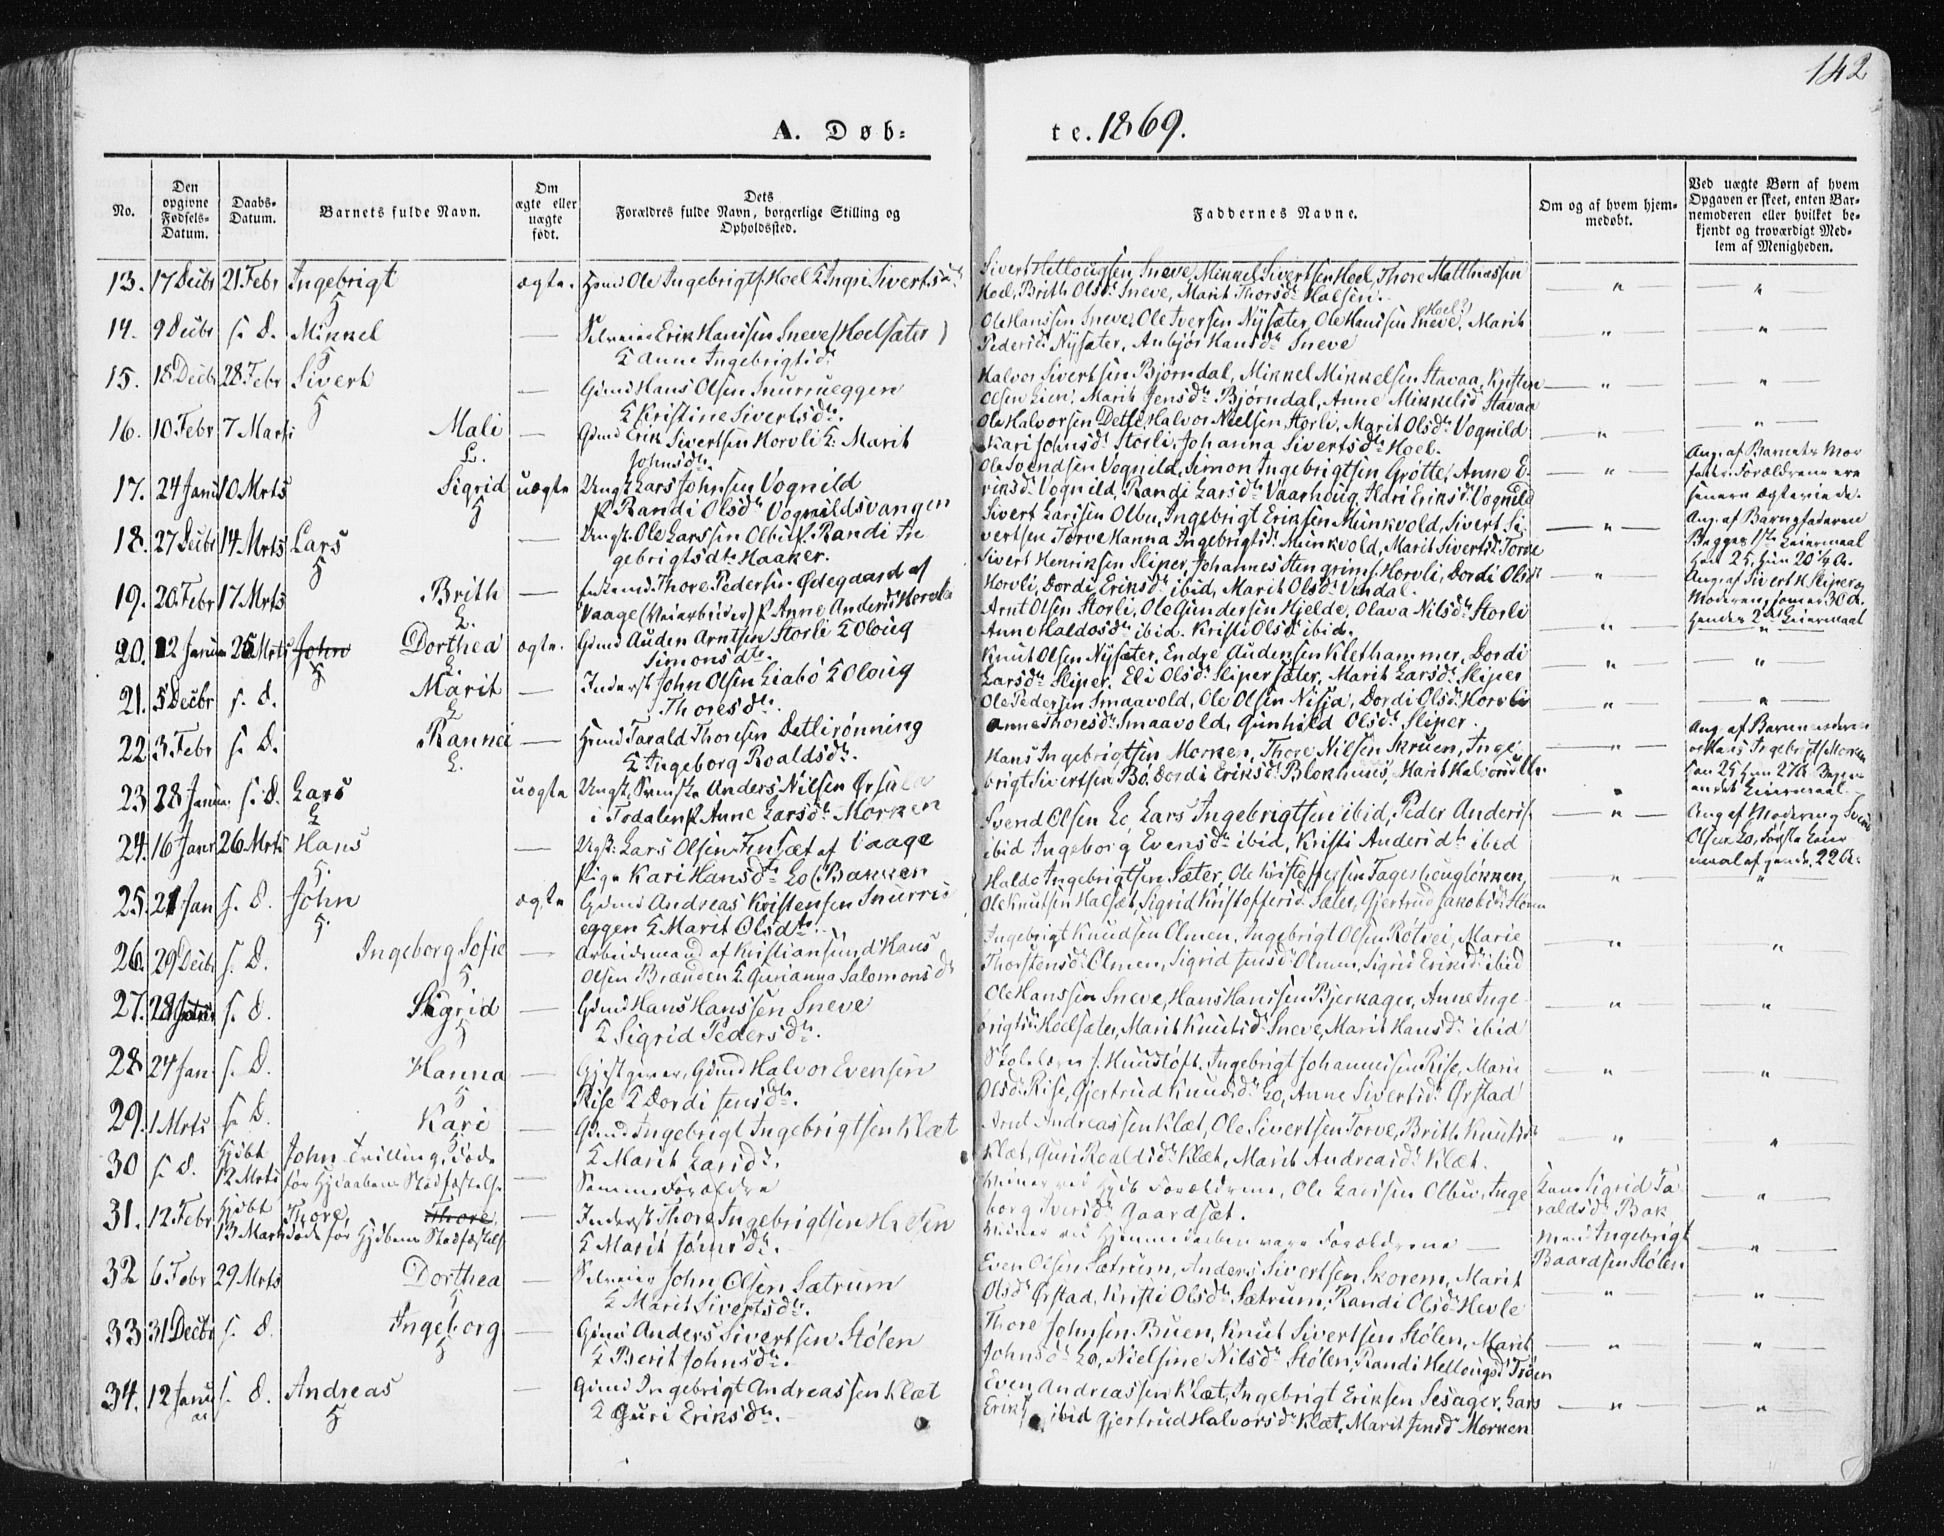 142
A. Døb-
te. 1869.
No.
Den opgivne Fødsels-Datum.
Daabs-Datum.
Barnets fulde Navn.
Om ægte eller uægte født.
Dets Forældres fulde Navn, borgerlige Stilling og Opholdssted.
Faddernes Navne.
Om og af hvem hjemmedøbt.
Ved uægte Børn af hvem Opgaven er skeet, enten Barnemoderen eller hvilket bekjendt og troværdigt Medlem af Menigheden.
13. 17 Decbr 21 Febr Ingebrigt ægte. Ole Ingebrigts. Hoel & Ingri Sivertsd.
Sneve, Mikkel Sivertsen Hoel, Thore Matthiassen
Hoel, Brith Olsd. Sneve, Marit Thorsd. Halsen. " "
14. 9 Decbr s. D. Mikkel — Erik Hanssen Sneve (Hoelsæter)
& Anne Ingebrigtsd.
Ole Hanssen Sneve, Ole Iversen Nysæter, Ole Hanssen Sneve, Marit (Hoel?)
Pedersd. Nysæter, Anbjør Hansd. Sneve " "
15. 18 Decbr 28 Febr Sivert — Gmd Hans Olsen Snurrueggen
& Kristine Sivertsd.
Halvor Sivertsen Bjørndal, Mikkel Mikkelsen Stavaa, Kristen
Olsen Lien, Marit Jensd. Bjørndal, Anne Mikkelsd. Stavaa " "
16. 10 Febr 7 Marts Mali — Gmd Erik Sivertsen Horvli & Marit
Johnsd.
Ole Halvorsen Detli, Halvor Nielsen Storli, Marit Olsd. Vognild
Kari Johnsd. Storli, Johanna Sivertsd. Hoel. " "
17. 24 Janu 10 Mrts Sigrid uægte Ungk. Lars Johnsen Vognild
P. Randi Olsd. Vognildsvangen
Ole Svendsen Vognild, Simon Ingebrigtsen Grøtte, Anne E-
riksd. Vognild, Randi Larsd. Vaarhoug, Kari Eriksd. Vognild "
Ang. af Barnets Mor
fader. Forældrene ere
senere ægteviede.
18. 27 Decbr 14 Mrts Lars — Ungk. Ole Larssen Olbu P. Randi In-
gebrigtsd. Haaker.
Sivert Larssen Olbu, Ingebrigt Eriksen Munkvold, Sivert Si-
vertsen Torve, Hanna Ingebrigtsd. Munkvold, Marit Sivertsd. Torve "
Ang. af Barnefaderen
Begges 1ste Leiermaal
Han 25, hun 20 ½ A.
19. 20 Febr 17 Mrts Brith — Thore Pedersen Ødegaard af
Vaage (Veiarbeider) P. Anne Andersd. Horvli
Sivert Henriksen Sliper, Johannes Stengrims. Horvli, Dordi Olsd.
Horvli, Dordi Eriksd. ibid, Marit Olsd. Vindal. "
Ang. af Sivert H Sliper og
Moderen, som er 30 A.
Hendes 2det Leiermaal
20. 12 Januar 25 Mrts John Dorthea ægte. Gmd Auden Arntsen Storli & Oloug
Simonsd.
Arnt Olsen Storli, Ole Gundersen Hjelde, Olava Nilsd. Storli
Anne Haldosd. ibid. Kristi Olsd. ibid. " "
21. 5 Decbr s. D. Marit — Inderst John Olsen Liabø & Oloug
Thoresd.
Knut Olsen Nysæter, Endre Audensen Klethammer, Dordi
Larsd. Sliper. Eli Olsd. Slipersæter, Marit Larsd. Sliper " "
22. 3 Febr s. D. Rannei — Tarald Thoresen Detlirønning
& Ingeborg Roaldsd.
Ole Pedersen Smaavold, Ole Olsen Nisja, Dordi Olsd. Horvli
Anne Thoresd. Smaavold, Gunhild Olsd. Sliper. " "
23 28 Januar. s. D. Lars uægte Ungk. Svenske Anders Nilsen Ørsula
i Todalen P. Anne Larsd. Morken
Hans Ingebrigtsen Morken, Thore Nielsen Skruen, Inge-
brigt Sivertsen Bø, Dordi Eriksd. Blokhuus, Marit Halvorsd. "
Ang. af Barnemoderen
og Hans Ingebrigts. Morken
Han 25, hun 27 A. Begges
andet Leiermaal.
24. 16 Janr 26 Mrts Hans — Ungk. Lars Olsen Finsæt af Vaage
Pige Kari Hansd. Lo (Bakken
Svend Olsen Lo, Lars Ingebrigtsen ibid, Peder Anders.
ibid Ingeborg Evensd. ibid, Kristi Andersd. ibid "
Ang. af Moderen og Svend
Olsen Lo, Første Leier
maal af hende. 22 A.
25. 21 Jan s. D. John ægte Gmd Andreas Kristensen Snurru
eggen & Marit Olsd.
Haldo Ingebrigtsen Sæter, Ole Kristoffersen Fagerhougløkken,
Ole Knutsen Halsæt, Sigrid Kristoffersd. Sæter, Gjertrud Jakobsd. " "
26. 29 Decbr s. D. Ingeborg Sofie — Arbeidsmand af Kristiansund Hans
Olsen Brænden & Gurianna Salomonsd.
Ingebrigt Knudsen Olmen, Ingebrigt Olsen Røtvei, Marie
Thorstensd. Olmen, Sigrid Jensd. Olmen, Sigrid Eriksd. ibid " "
27. 28 s. D. Sigrid — Gmd Hans Hanssen Sneve
& Sigrid Pedersd.
Ole Hanssen Sneve, Hans Hanssen Bjerkager, Anne Inge-
brigtsd. Hoelsæter, Marit Knutsd. Sneve, Marit Hansd. ibid " "
28 24 Jan s. D. Hanna — Gjestgiver, Gmd Halvor Evensen
Rise & Dordi Jensd.
Skolelærer J. Huustoft, Ingebrigt Johannessen Rise, Mari
Olsd. Rise, Gjertrud Knudsd. Lo, Anne Sivertsd. Ørstad " "
29. 1 Mrts s. D. Kari — Gmd Ingebrigt Ingebrigtsen Klæt
& Marit Larsd.
Arnt Andreassen Klæt, Ole Sivertsen Torve, Brith Knutsd.
Klæt, Guri Roaldsd. Klæt, Marit Andreasd. Klæt. " "
30 s. D. Hjdbt 12 Mrts John Tvilling, døde
før Hjdaabens Stadfæstelse — Samme Forældre
Vidner ved Hjdb Forældrene, Ole Larssen Olbu, Inge
borg Iversd. Gaardsæt.
Kone Sigrid Ta-
raldsd. Bak "
31. 12 Febr Hjdbt 13 Marts Thore, Thore,
døde før Hjdbens Stadfæstelse — Inderst Thore Ingebrigtsen Halsen
& Marit Johnsd.
Vidner ved Hjemmedaaben vare Forældrene —
Mand Ingebrigt
Baardsen Stølen "
32 6 Febr 29 Mrts Dorthea — Selveier John Olsen Sætrum
& Marit Sivertsd.
Even Olsen Sætrum, Anders Sivertsen Skorem, Marit
Olsd. Ørstad, Kristi Olsd. Sætrum, Randi Olsd. Hevle " "
33 31 Decbr s. D. Ingeborg — Gmd Anders Sivertsen Stølen
& Berit Johnsd.
Thore Johnsen Buen, Knut Sivertsen Stølen, Marit
Johnsd. Lo, Nielsine Nilsd. Stølen, Randi Hellougsd. Troen " "
34. 12 Januar s. D. Andreas — Gmd Ingebrigt Andreassen Klæt
& Guri Eriksd.
Even Andreassen Klæt, Ingebrigt Eriksen Sesager, Lars
Eriks. ibid Gjertrud Halvorsd. Klæt, Marit Jensd. Morken " "